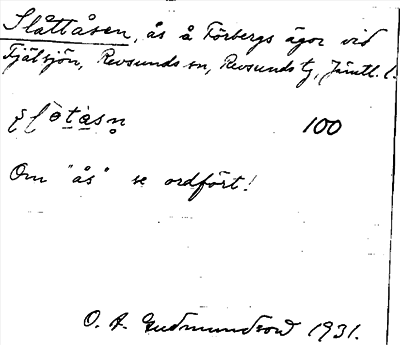 Slåttåsen, ås å Förbergs ägor vid
Fjälsjön, Revsunds sn, Revsunds tg, Jämtl. l.
100
Om "ås" se ordfört!
O. A. Gudmundsson 1931.